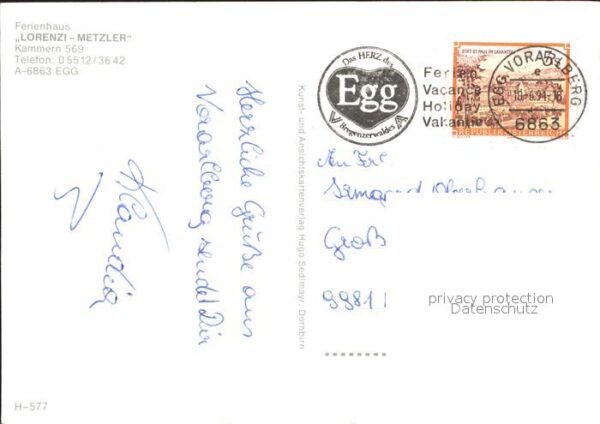 Ferienhaus
„LORENZI – METZLER"
Kammern 569
Telefon: 0 55 12 / 36 42
A-6863 EGG
Herzliche Grüße aus
Vorarlberg sendet Dir
Claudia
Kunst- und Ansichtskartenverlag Hugo Sedlmayr, Dornbirn
Das HERZ des
Egg
Bregenzerwaldes
Ferien
Vacance
Holiday
Vakantie
5
STIFT ST. PAUL IM LAVANTTAL
REPUBLIK ÖSTERREICH
EGG, VORARLBERG
e
6863
An Frl.
Groß
99811
privacy protection
Datenschutz
H-577